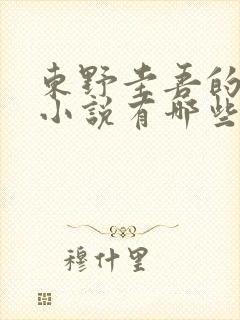 東野圭吾的
小說有哪些
穆什里